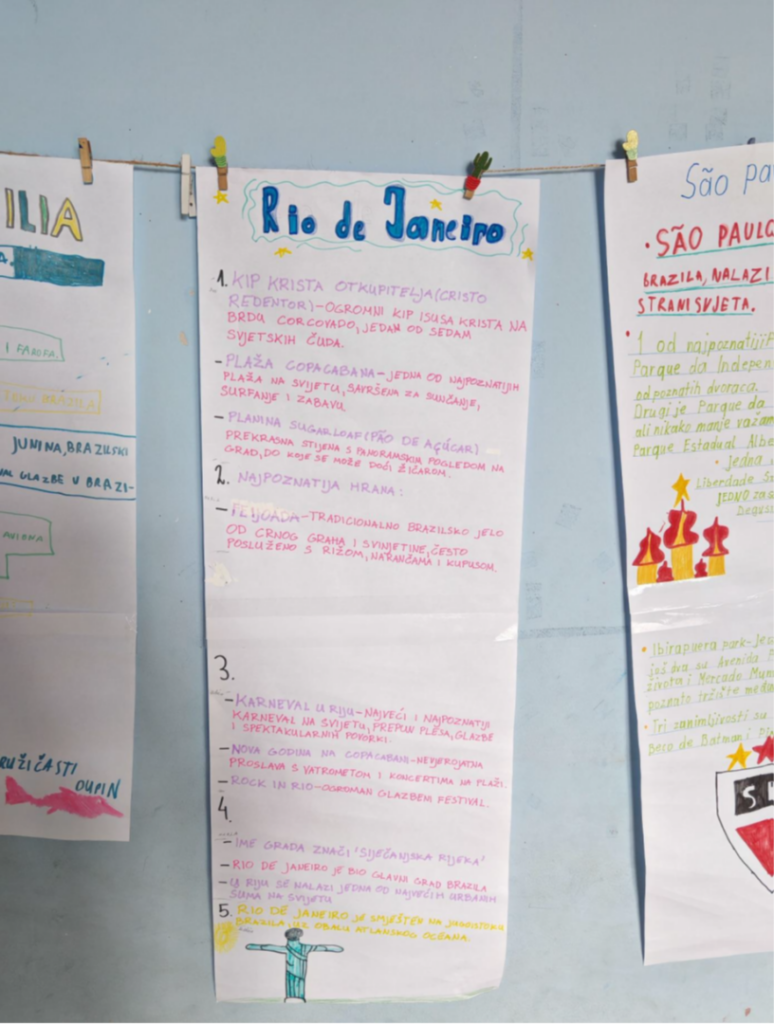 ILIA
I FAROFA.
JUNINA, BRAZILSKI
GLAZBE U BRAZI-
AVIONA
RUŽIČASTI
DUPIN
Rio de Janeiro
1. KIP KRISTA OTKUPITELJA (CRISTO
REDENTOR) - OGROMNI KIP ISUSA KRISTA NA
BRDU CORCOVADO, JEDAN OD SEDAM
SVJETSKIH ČUDA.
- PLAŽA COPACABANA - JEDNA OD NAJPOZNATIJIH
PLAŽA NA SVIJETU, SAVRŠENA ZA SUNČANJE,
SURFANJE I ZABAVU.
- PLANINA SUGARLOAF (PÃO DE AÇÚCAR)
PREKRASNA STIJENA S PANORAMSKIM POGLEDOM NA
GRAD, DO KOJE SE MOŽE DOĆI ŽIČAROM.
2. NAJPOZNATIJA HRANA:
- FEIJOADA - TRADICIONALNO BRAZILSKO JELO
OD CRNOG GRAHA I SVINJETINE, ČESTO
POSLUŽENO S RIŽOM, NARANČAMA I KUPUSOM.
3.
- KARNEVAL U RIJU - NAJVEĆI I NAJPOZNATIJI
KARNEVAL NA SVIJETU, PREPUN PLESA, GLAZBE
I SPEKTAKULARNIH POVORKI.
- NOVA GODINA NA COPACABANI - NEVJEROJATNA
PROSLAVA S VATROMETOM I KONCERTIMA NA PLAŽI.
- ROCK IN RIO - OGROMAN GLAZBENI FESTIVAL.
4.
- IME GRADA ZNAČI 'SIJEČANJSKA RIJEKA'
- RIO DE JANEIRO JE BIO GLAVNI GRAD BRAZILA
- U RIJU SE NALAZI JEDNA OD NAJVEĆIH URBANIH
ŠUMA NA SVIJETU
5. RIO DE JANEIRO JE SMJEŠTEN NA JUGOISTOKU
BRAZILA, UZ OBALU ATLANSKOG OCEANA.
São Pa
• SÃO PAULO
BRAZILA, NALAZI
STRANI SVJETA.
• 1 od najpoznatijih
Parque da Indepen
od poznatih dvoraca.
Drugi je Parque da
ali nikako manje važan
Parque Estadual Albe
• Jedna
Liberdade
JEDNO
Degus
• Ibirapuera park - Je
još dva su Avenida P
života i Mercado Mun
poznato tržište među
• Tri zanimljivosti su
Beco de Batman i
S